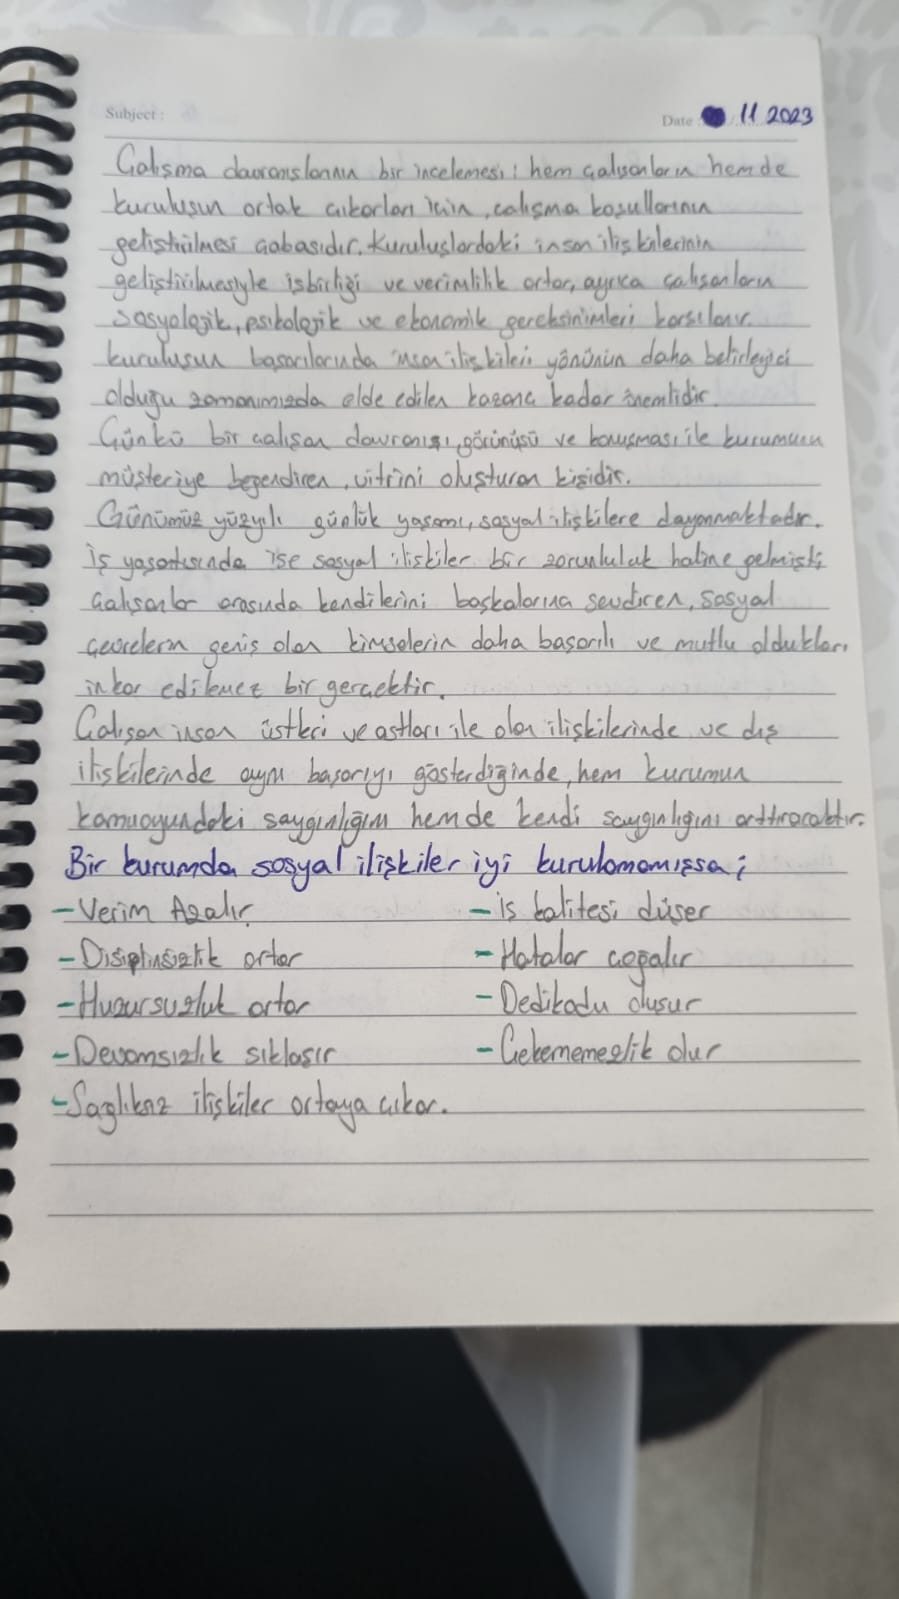 Subject :
Date : 11 2023
Çalışma davranışlarının bir incelemesi: hem çalışanların hemde
kuruluşun ortak çıkarları için, çalışma koşullarının
geliştirilmesi çabasıdır. Kuruluşlardaki insan ilişkilerinin
geliştirilmesiyle işbirliği ve verimlilik artar, ayrıca çalışanların
sosyolojik, psikolojik ve ekonomik gereksinimleri karşılanır.
kuruluşun başarılarında insan ilişkileri yönünün daha belirleyici
olduğu zamanımızda elde edilen kazanç kadar önemlidir.
Çünkü bir çalışan davranışı, görünüşü ve konuşması ile kurumunu
müşteriye beğendiren, vitrini oluşturan kişidir.
Günümüz yüzyılı günlük yaşamı, sosyal ilişkilere dayanmaktadır.
İş yaşantısında ise sosyal ilişkiler bir zorunluluk haline gelmişti
Çalışanlar arasında kendilerini başkalarına sevdiren, sosyal
çevrelerin geniş olan kimselerin daha başarılı ve mutlu oldukları
inkar edilemez bir gerçektir.
Çalışan insan üstleri ve astları ile olan ilişkilerinde ve dış
ilişkilerinde aynı başarıyı gösterdiğinde, hem kurumun
kamuoyundaki saygınlığını hemde kendi saygınlığını arttıracaktır.
Bir kurumda sosyal ilişkiler iyi kurulamamışsa ;
- Verim Azalır.
- Disiplinsizlik artar
- Huzursuzluk artar
- Devamsızlık sıklaşır
- Sağlıksız ilişkiler ortaya çıkar.
- İş kalitesi düşer
- Hatalar çoğalır
- Dedikodu oluşur
- Çekememezlik olur